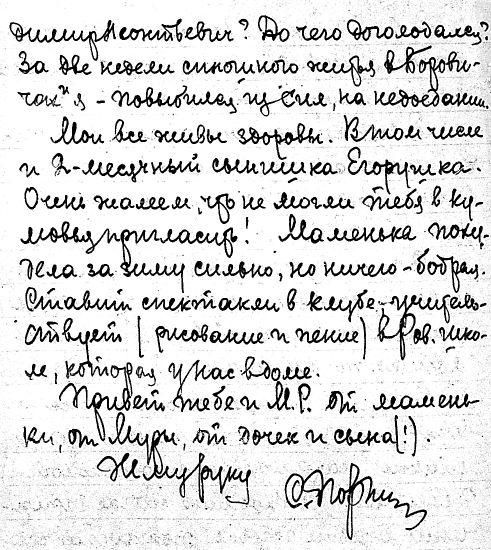 димир Леонтьевич? До чего доголодался?
За две недели сплошного житья в Борови-
чах и я - повыбился из сил, на недоедании.
Мои все живы здоровы. В том числе
и 2-месячный сынишка Егорушка.
Очень жалеем, что не могли тебя в ку-
мовья пригласить! Маменька поху-
дела за зиму сильно, но ничего - бодрая.
Ставит спектакли в клубе, учитель-
ствует (рисование и пение) в Ров. шко-
ле, которая у нас в доме.
Привет тебе и М.Р. от мамень-
ки, от Мури, от дочек и сына (!).
Жму руку